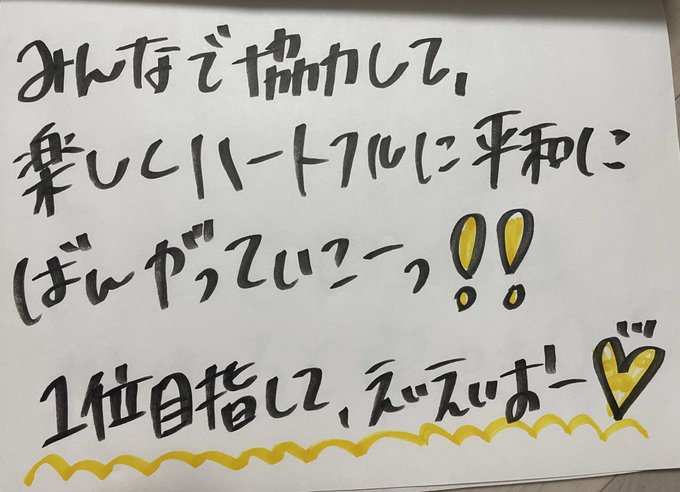 みんなで協力して、
楽しくハートフルに平和に
ばんがっていこーっ!!
1位目指して、えいえいおー♡